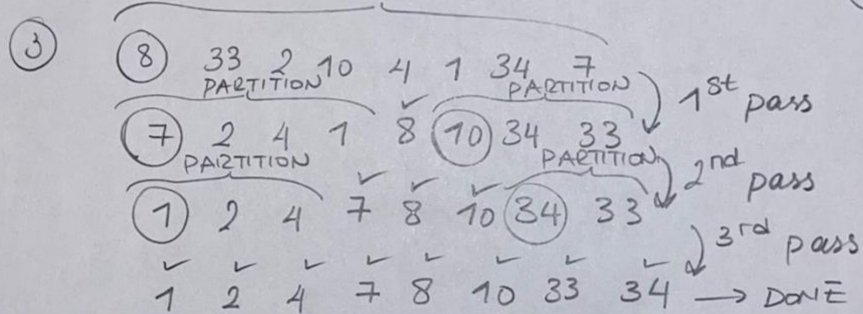 3
8 33 2 10 4 1 34 7
PARTITION PARTITION
1st pass
7 2 4 1 8 10 34 33
PARTITION PARTITION
2nd pass
1 2 4 7 8 10 34 33
3rd pass
1 2 4 7 8 10 33 34 → DONE